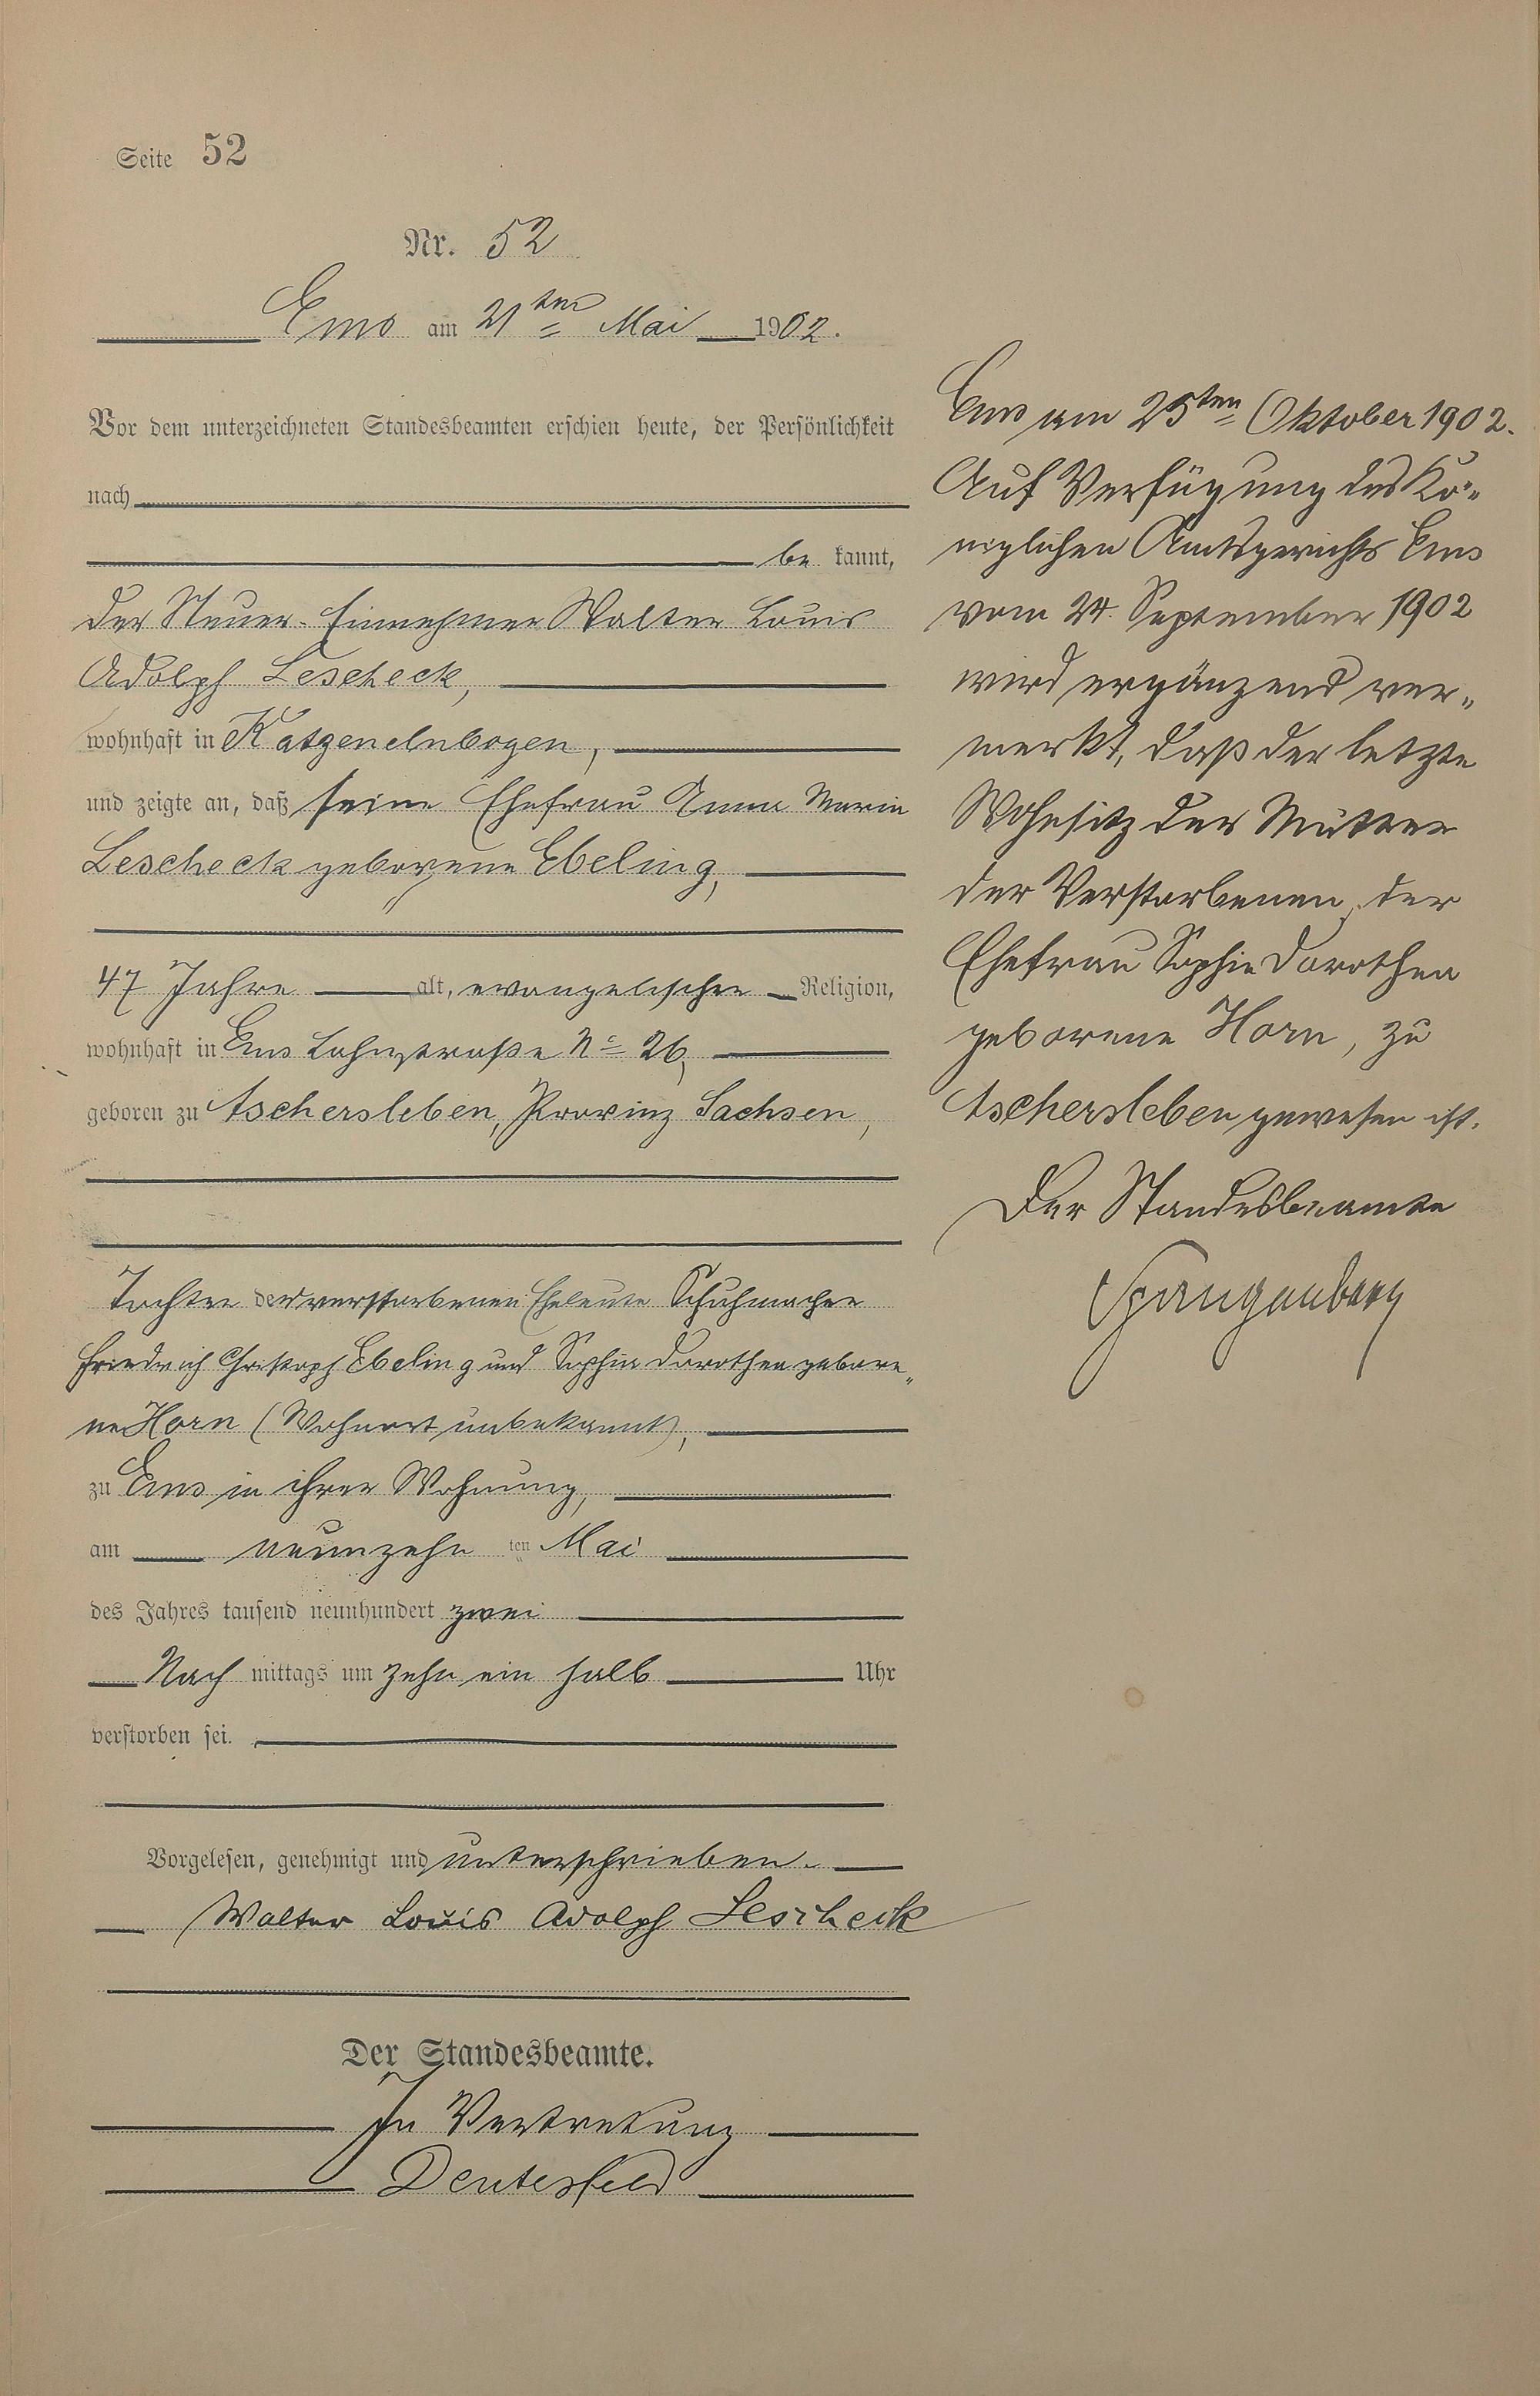 Seite 52
Nr. 52
Ems am 21ten Mai 1902.
Vor dem unterzeichneten Standesbeamten erschien heute, der Persönlichkeit
nach
be kannt,
der Steuer-Einnehmer Walter Louis
Adolph Lescheck,
wohnhaft in Katzenelnbogen,
und zeigte an, daß seine Ehefrau Anna Maria
Lescheck geborene Ebeling,
47 Jahre alt, evangelischer Religion,
wohnhaft in Ems Lahnstraße No 26,
geboren zu Aschersleben, Provinz Sachsen,
Tochter der verstorbenen Eheleute Schuhmacher
Friedrich Christoph Ebeling und Sophia Dorothea gebore„
ne Horn (Wohnort unbekannt),
zu Ems in ihrer Wohnung,
am neunzehn ten Mai
des Jahres tausend neunhundert zwei
Nach mittags um zehn ein halb Uhr
verstorben sei.
Vorgelesen, genehmigt und unterschrieben.
Walter Louis Adolph Lescheck
Der Standesbeamte.
In Vertretung
Deutesfeld
Ems am 25ten Oktober 1902.
Auf Verfügung des Kö„
niglichen Amtsgerichts Ems
vom 24. September 1902
wird ergänzend ver„
merkt, daß der letzte
Wohnsitz der Mutter
der Verstorbenen, der
Ehefrau Sophie Dorothea
geborene Horn, zu
Aschersleben gewesen ist.
Der Standesbeamte
Spangenberg